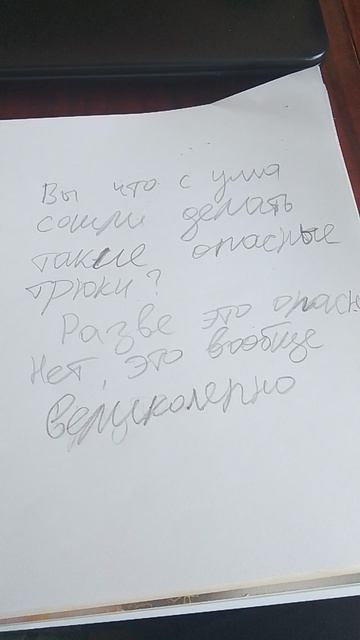 Вы что с ума
сошли делать
такие опасные
трюки?
Разве это опасн
Нет, это вообще
великолепно